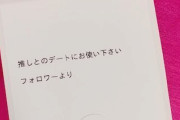 推しとのデートにお使い下さい
フォロワーより